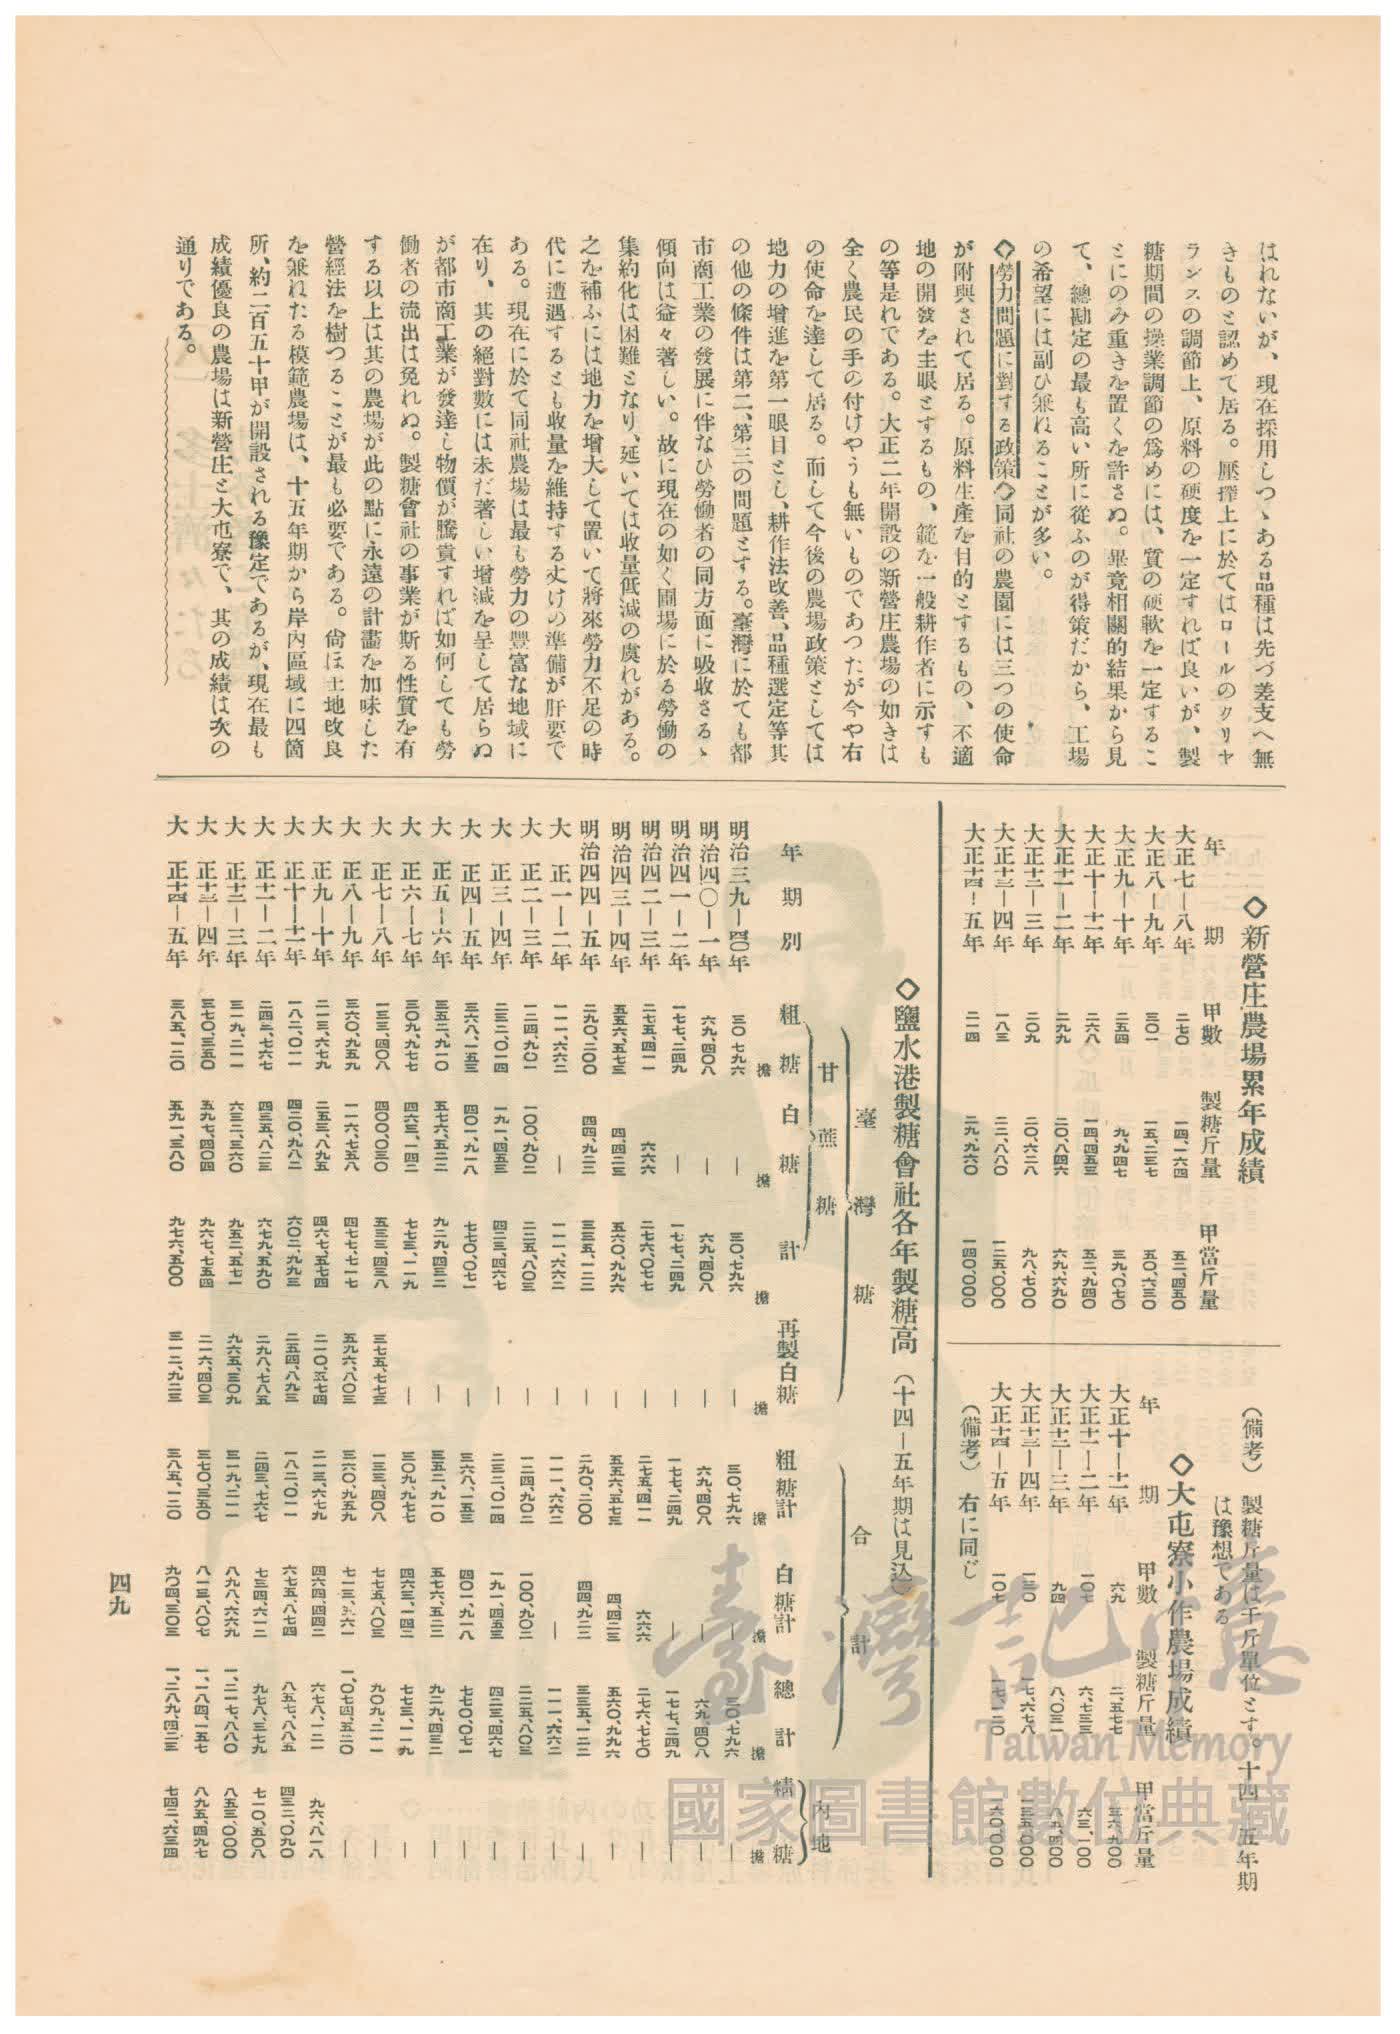 はれないが、現在採用しつゝある品種は先づ差支へ無
きものと認めて居る。壓搾上に於てはロールのクリヤ
ランスの調節上、原料の硬度を一定すれば良いが、製
糖期間の操業調節の爲めには、質の硬軟を一定するこ
とにのみ重きを置くを許さぬ。畢竟相關的結果から見
て、總勘定の最も高い所に從ふのが得策だから、工場
の希望には副ひ兼ねることが多い。
◇勞力問題に對する政策◇同社の農園には三つの使命
が附與されて居る。原料生産を目的とするもの、不適
地の開發を主眼とするもの、範を一般耕作者に示すも
の等是れである。大正二年開設の新營庄農場の如きは
全く農民の手の付けやうも無いものであつたが今や右
の使命を達して居る。而して今後の農場政策としては
地力の增進を第一眼目とし、耕作法改善、品種選定等其
の他の條件は第二、第三の問題とする。臺灣に於ても都
市商工業の發展に伴なひ勞働者の同方面に吸收さるゝ
傾向は益々著しい。故に現在の如く圃場に於る勞働の
集約化は困難となり、延いては收量低減の虞れがある。
之を補ふには地力を增大して置いて將來勞力不足の時
代に遭遇するとも收量を維持する丈けの準備が肝要で
ある。現在に於て同社農場は最も勞力の豐富な地域に
在り、其の絕對數には未だ著しい增減を呈して居らぬ
が都市商工業が發達し物價が騰貴すれば如何しても勞
働者の流出は免れぬ。製糖會社の事業が斯る性質を有
する以上は其の農場が此の點に永遠の計畫を加味した
營經法を樹つることが最も必要である。尙ほ土地改良
を兼ねたる模範農場は、十五年期から岸內區域に四箇
所、約二百五十甲が開設される豫定であるが、現在最も
成績優良の農場は新營庄と大屯寮で、其の成績は次の
通りである。
◇新營庄農場累年成績
年 期 甲數 製糖斤量 甲當斤量
大正七―八年 二七〇 一四、一六四 五二、四五〇
大正八―九年 三〇一 一五、二三七 五〇、六三〇
大正九―十年 二五四 九、九四七 三九、〇七〇
大正十―十一年 二六八 一四、四五三 五二、九四〇
大正十一―二年 二九九 二〇、八四六 六九、六九〇
大正十二―三年 二〇九 二〇、六二八 九八、七〇〇
大正十三―四年 一八三 二二、八八〇 一二五、〇〇〇
大正十四―五年 二一四 二九、九六〇 一四〇、〇〇〇
(備考) 製糖斤量は千斤單位とす。十四―五年期
は豫想である
◇大屯寮小作農場成績
年 期 甲數 製糖斤量 甲當斤量
大正十―十一年 六九 二、五七七 三六、九〇〇
大正十一―二年 一〇七 六、七三三 六三、一〇〇
大正十二―三年 九四 八、〇三一 八五、四〇〇
大正十三―四年 一三〇 一七、六七八 一三五、〇〇〇
大正十四―五年 一〇七 一七、一二〇 一六〇、〇〇〇
(備考) 右に同じ
◇鹽水港製糖會社各年製糖高(十四―五年期は見込)
臺灣糖 合計 內地
甘蔗糖
年期別 粗糖 白糖 計 再製白糖 粗糖計 白糖計 總計 精糖
擔 擔 擔 擔 擔 擔 擔 擔
明治三九―四〇年 三〇、七九六 ― 三〇、七九六 ― 三〇、七九六 ― 三〇、七九六 ―
明治四〇―一年 六九、四〇八 ― 六九、四〇八 ― 六九、四〇八 ― 六九、四〇八 ―
明治四一―二年 一七七、二四九 ― 一七七、二四九 ― 一七七、二四九 ― 一七七、二四九 ―
明治四二―三年 二七五、四一一 六六六 二七六、〇七七 ― 二七五、四一一 六六六 二七六、七七〇 ―
明治四三―四年 五五六、五七三 四、四二三 五六〇、九九六 ― 五五六、五七三 四、四二三 五六〇、九九六 ―
明治四四―五年 二九〇、二〇〇 四四、九二二 三三五、一二二 ― 二九〇、二〇〇 四四、九二二 三三五、一二二 ―
大正一―二年 一一一、六六二 ― 一一一、六六二 ― 一一一、六六二 ― 一一一、六六二 ―
大正二―三年 一二四、九〇一 一〇〇、九〇二 二二五、八〇三 ― 一二四、九〇二 一〇〇、九〇二 二二五、八〇三 ―
大正三―四年 二三二、〇一四 一九一、四五三 四二三、四六七 ― 二三二、〇一四 一九一、四五三 四二三、四六七 ―
大正四―五年 三六八、一五三 四〇一、九一八 七七〇、〇七一 ― 三六八、一五三 四〇一、九一八 七七〇、〇七一 ―
大正五―六年 三五二、九一〇 五七六、五二二 九二九、四三二 ― 三五二、九一〇 五七六、五二二 九二九、四三二 ―
大正六―七年 三〇九、九七七 四六三、一四二 七七三、一一九 ― 三〇九、九七七 四六三、一四二 七七三、一一九 ―
大正七―八年 一三三、四〇八 四〇〇、〇三〇 五三三、四三八 三七五、七七三 一三三、四〇八 七七五、八〇三 九〇九、二一一 ―
大正八―九年 三六〇、九五九 一一六、七五八 四七七、七一七 五九六、八〇三 三六〇、九五九 七一三、五六一 一、〇七四、五二〇 ―
大正九―十年 二一三、六七九 二五三、八九五 四六七、五七四 二一〇、五七四 二一三、六七九 四六四、四四二 六七八、一二一 九六、八一八
大正十―十一年 一八二、〇一一 四二〇、九八二 六〇二、九九三 二五四、八九三 一八二、〇一一 六七五、八七四 八五七、八八五 四三二、〇九〇
大正十一―二年 二四三、七六七 四三五、八二三 六七九、五九〇 二九八、七八五 二四三、七六七 七三四、六一二 九七八、三七九 七一〇、五〇八
大正十二―三年 三一九、二一一 六三二、三六〇 九五二、五七一 九六五、三〇九 三一九、二一一 八九八、六六九 一、二一七、八八〇 八五三、〇〇〇
大正十三―四年 三七〇、三五〇 五九七、四〇四 九六七、七五四 二一六、四〇三 三七〇、三五〇 八一三、八〇七 一、一八四、一五七 八九五、四九七
大正十四―五年 三八五、一二〇 五九一、三八〇 九七六、五〇〇 三一二、九二三 三八五、一二〇 九〇四、三〇三 一、二八九、四二三 七四二、六三四
四九
臺灣記憶
Taiwan Memory
國家圖書館數位典藏